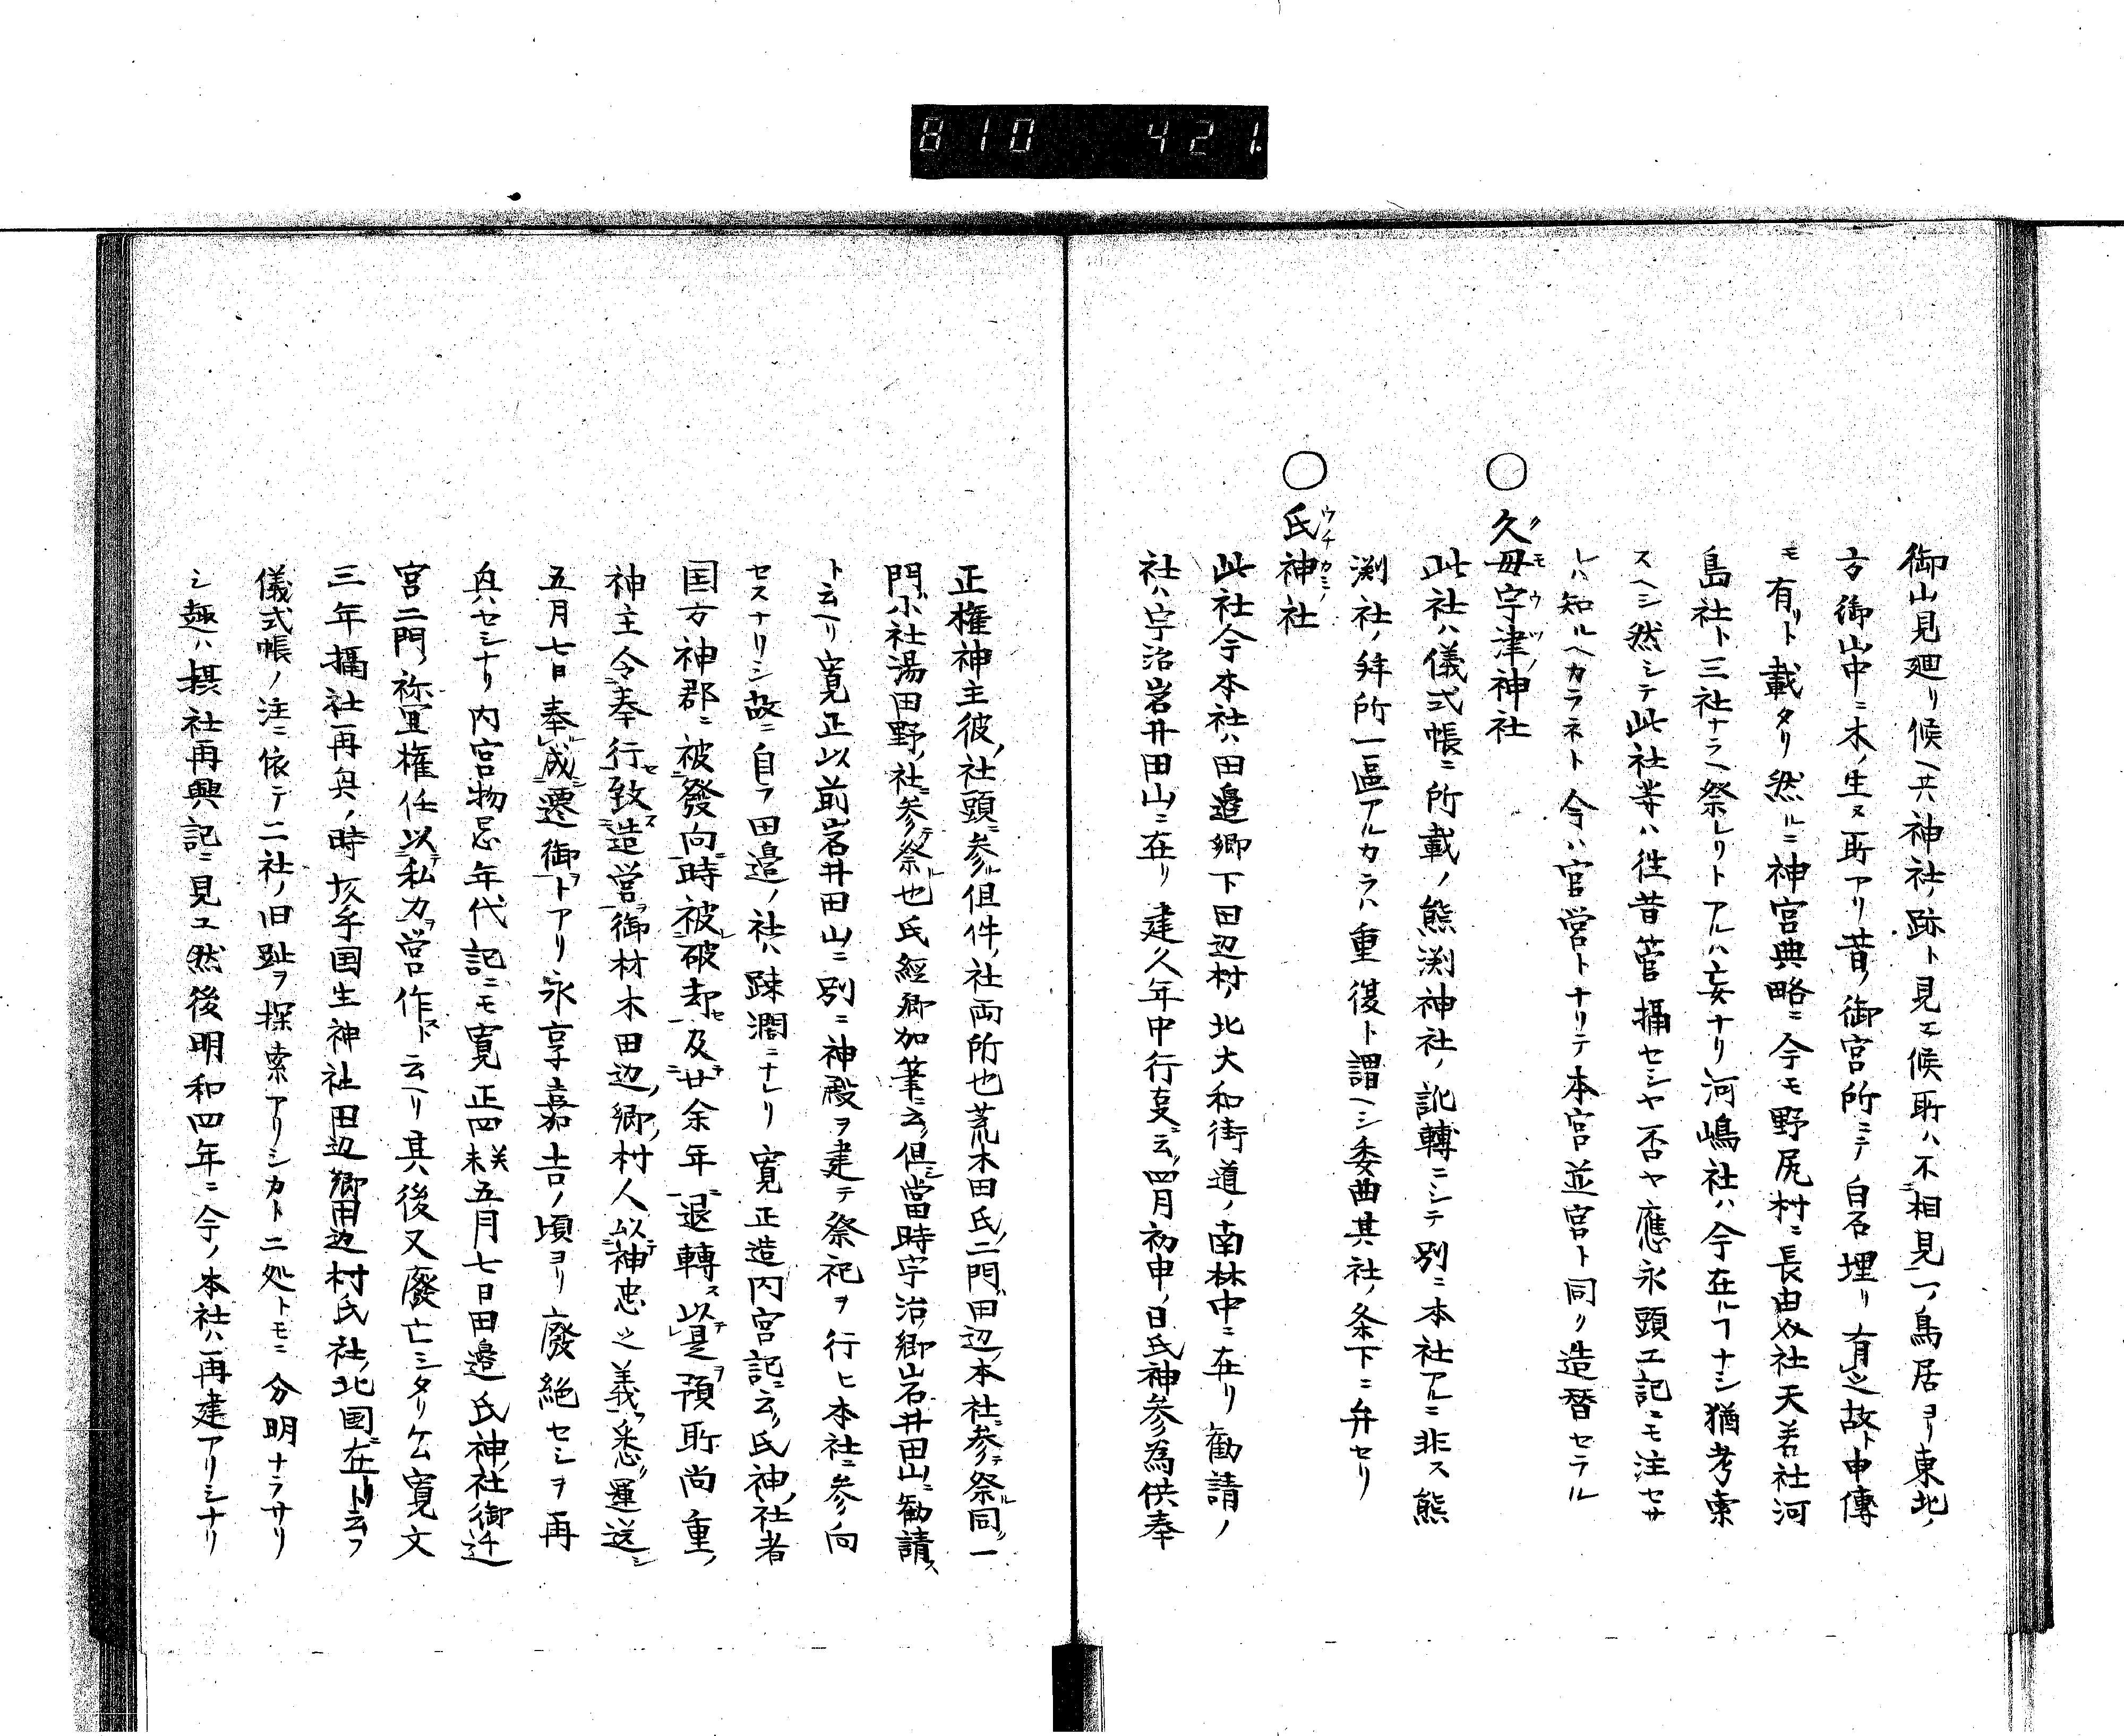 810 421.
御山見廻リ候ヘ共神社ノ跡ト見エ候所ハ不相見一ノ鳥居ヨリ東北ノ
方御山中ニ木ノ生ヌ所アリ昔ノ御宮所ニテ白石埋リ有之故ト申傳
モ有リト載タリ然ルニ神宮典略ニ今モ野尻村ニ長由介社天若社河
島社ト三社ナラヘ祭レリトアルハ妄ナリ河嶋社ハ今在ルヿナシ猶考索
スヘシ然シテ此社等ハ往昔管攝セシヤ否ヤ應永頭工記ニモ注セサ
レハ知ルヘカラネト今ハ官営トナリテ本宮並宮ト同ク造替セラル
○久毋宇津神社
クモウツノ
此社ハ儀式帳ニ所載ノ熊渕神社ノ訛轉ニシテ別ニ本社アルニ非ス熊
渕社ノ拜所一區アルカラハ重復ト謂ヘシ委曲其社ノ条下ニ弁セリ
○氏神社
ウチカミノ
此社今本社ハ田邉郷下田辺村ノ北大和街道ノ南林中ニ在リ勧請ノ
社ハ宇治岩井田山ニ在リ建久年中行事ニ云ク四月初申ノ日氏神参為供奉
正権神主彼ノ社頭ニ参ル但件ノ社両所也荒木田氏ノ二門ハ田辺ノ本社ニ参テ祭ル同ク一
門ハ小社湯田野ノ社ニ参テ祭ル也氏經卿加筆ニ云ク但シ當時宇治ノ郷岩井田山ニ勧請ス
ト云ヘリ寛正以前岩井田山ニ別ニ神殿ヲ建テ祭祀ヲ行ヒ本社ニ参ノ向
セスナリシ故ニ自ラ田邉ノ社ハ疎濶ニナレリ寛正造内宮記ニ云ク氏神ノ社者
国方神郡ニ被發向ニ時被破却セ及廿余年ニ退轉ス以是ヲ預所尚重ノ
神主令奉行セ致ス造営ヲ御材木田辺ノ郷ノ村人以神忠之義ヲ悉ク運送シ
五月七日奉成シ遷御ヲトアリ永享嘉吉ノ頃ヨリ廢絶セシヲ再
興セシナリ内宮物忌年代記ニモ寛正四癸未五月七日田邉氏神ノ社御チ迠
宮二門ノ祢宜権任以私力ヲ営作ストト云ヘリ其後又廢亡シタリケム寛文
三年攝社再興ノ時坂手国生神社田辺郷田辺村氏社ノ北ノ国ニ在リト云フ
儀式帳ノ注ニ依テ二社ノ旧趾ヲ探索アリシカト二処トモニ分明ナラサリ
シ趣ハ摂社再興記ニ見エ然後明和四年ニ今ノ本社ハ再建アリシナリ